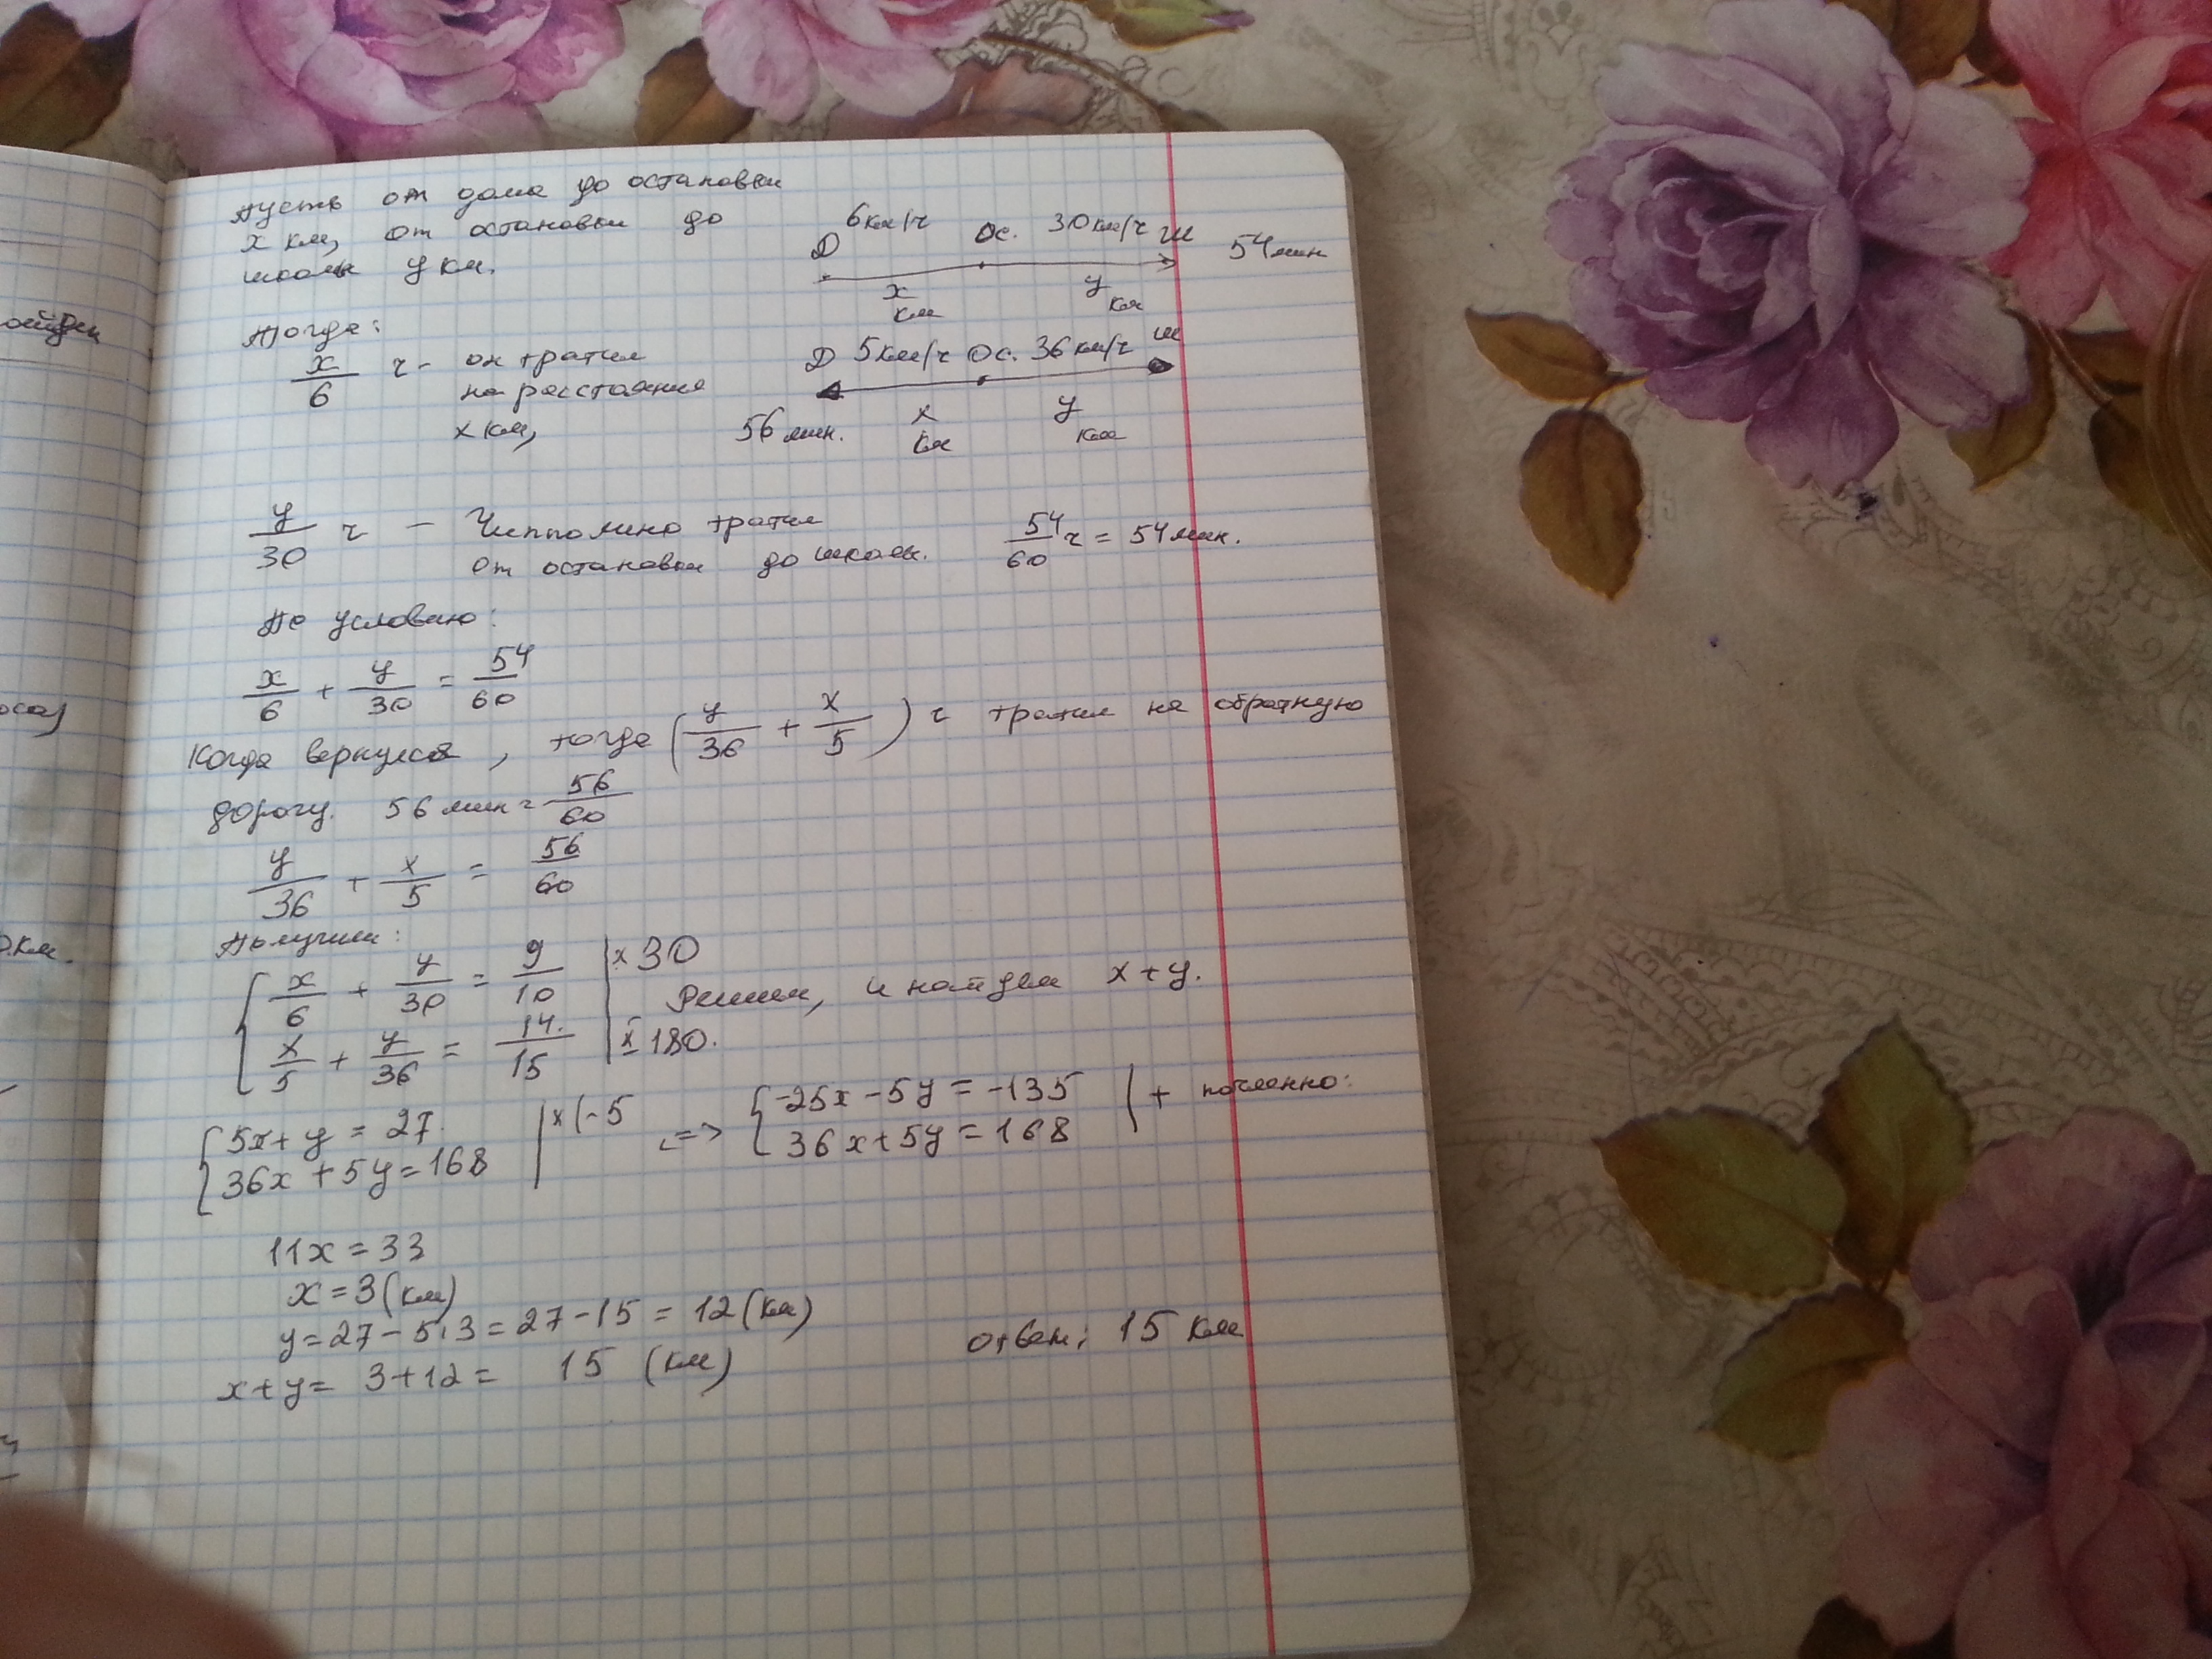 Пусть от дома до остановки
x км, от остановки до
школы y км.
6км/ч Ос. 30км/ч Ш
Д
54мин
x км y км
Тогда:
x/6 ч - он тратил
на расстояние
x км,
Д 5км/ч Ос. 36км/ч Ш
56 мин. x км y км
y/30 ч - Чипполино тратил
от остановки до школы.
54/60 ч = 54мин.
По условию:
x/6 + y/30 = 54/60
Когда вернулся, тогда (y/36 + x/5) ч тратил на обратную
дорогу. 56 мин = 56/60
y/36 + x/5 = 56/60
Получим:
{ x/6 + y/30 = 9/10 | x 30
Решим, и найдем x+y.
x/5 + y/36 = 14/15 | x 180.
{ 5x+y=27. | x(-5 <=> { -25x-5y=-135 | + почленно:
36x+5y=168 36x+5y=168
11x=33
x=3(км)
y=27-5·3=27-15=12(км)
x+y= 3+12= 15 (км)
ответ: 15 км
0км.